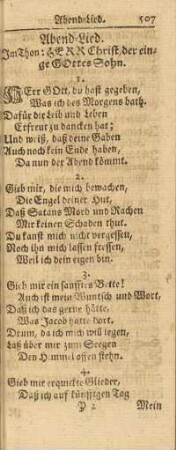 Abend-Lied. 507
Abend-Lied.
Im Thon: HERR Christ, der ein-
ge GOttes Sohn.
1.
HErr GOtt, du hast gegeben,
Was ich des Morgens bath.
Dafür die Leib und Leben
Erfreut zu dancken hat;
Und weiß, daß deine Gaben
Auch noch kein Ende haben,
Da nun der Abend kömmt.
2.
Gieb mir, die mich bewachen,
Die Engel deiner Hut,
Daß Satans Mord und Rachen
Mir keinen Schaden thut.
Du kanst mich nicht vergessen,
Noch ihn mich lassen fressen,
Weil ich dein eigen bin.
3.
Gieb mir ein sanfftes Bette!
Auch ist mein Wuntsch und Wort,
Daß ich das gerne hätte,
Was Jacob hatte dort.
Drum, da ich mich will legen,
Laß über mir zum Seegen
Den Himmel offen stehn.
4.
Gieb mir erquickte Glieder,
Daß ich auf künfftgen Tag
Mein